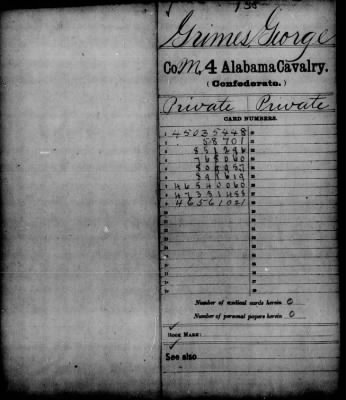 Grimes, George
Co. M, 4 Alabama Cavalry.
(Confederate.)
Private Private
CARD NUMBERS.
1 45035448
2 58701
3 851296
4
5
6
7 46540060
8 47351455
9 46561021
Number of medical cards herein 0
Number of personal papers herein 0
BOOK MARK:
See also